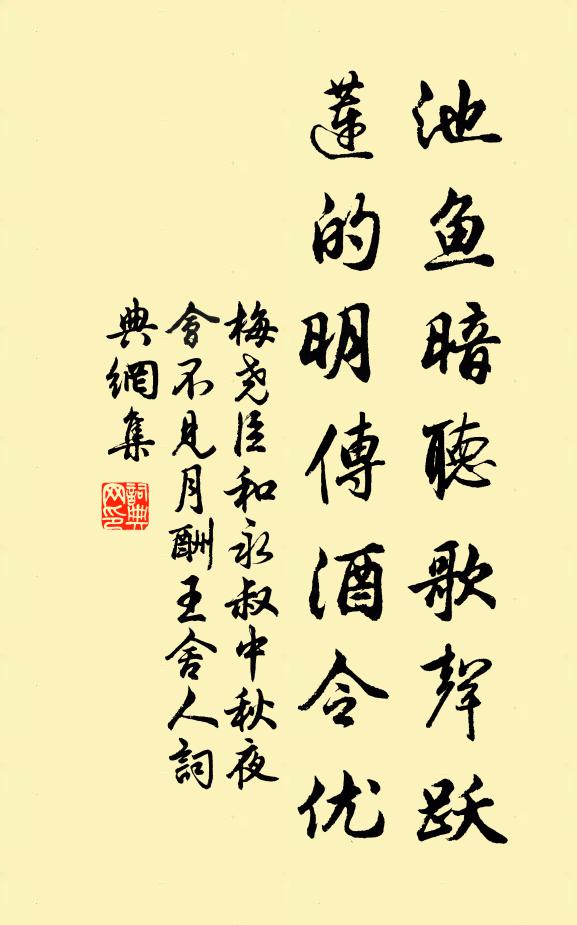 池鱼暗聴歌聲跃
蓮的明傳酒令优
梅尧臣和永叔中秋夜
會不見月酬王舍人詞
典網集
詞典网印